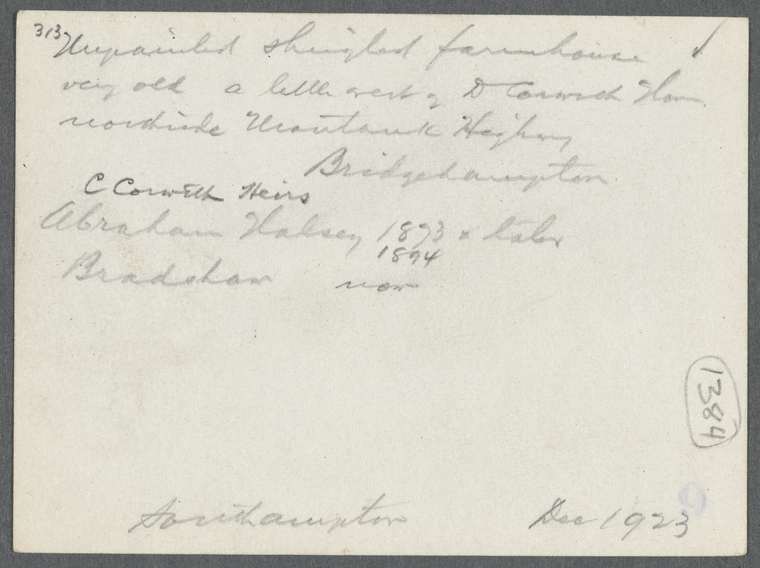 313 Unpainted shingled farmhouse
very old a little west of D Corwith Home
northside Montauk Highway
Bridgehampton
C Corwith Heirs
Abraham Halsey 1873 & later
1894
Bradshaw now
1384
Southampton Dec 1923
9